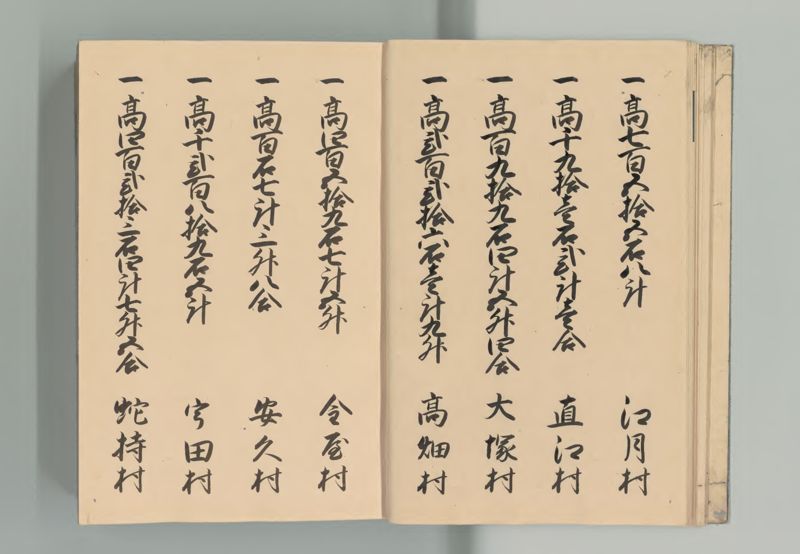 一高七百五拾五石八斗 江月村
一高千九拾壱石弐斗壱合 直江村
一高百九拾九石四斗五升四合 大塚村
一高弐百弐拾六石壱斗九升 高畑村
一高四百五拾九石七斗五升 今屋村
一高百石七斗三升八合 安久村
一高千弐百八拾九石五斗 宇田村
一高四百弐拾三石四斗七升五合 蛇持村